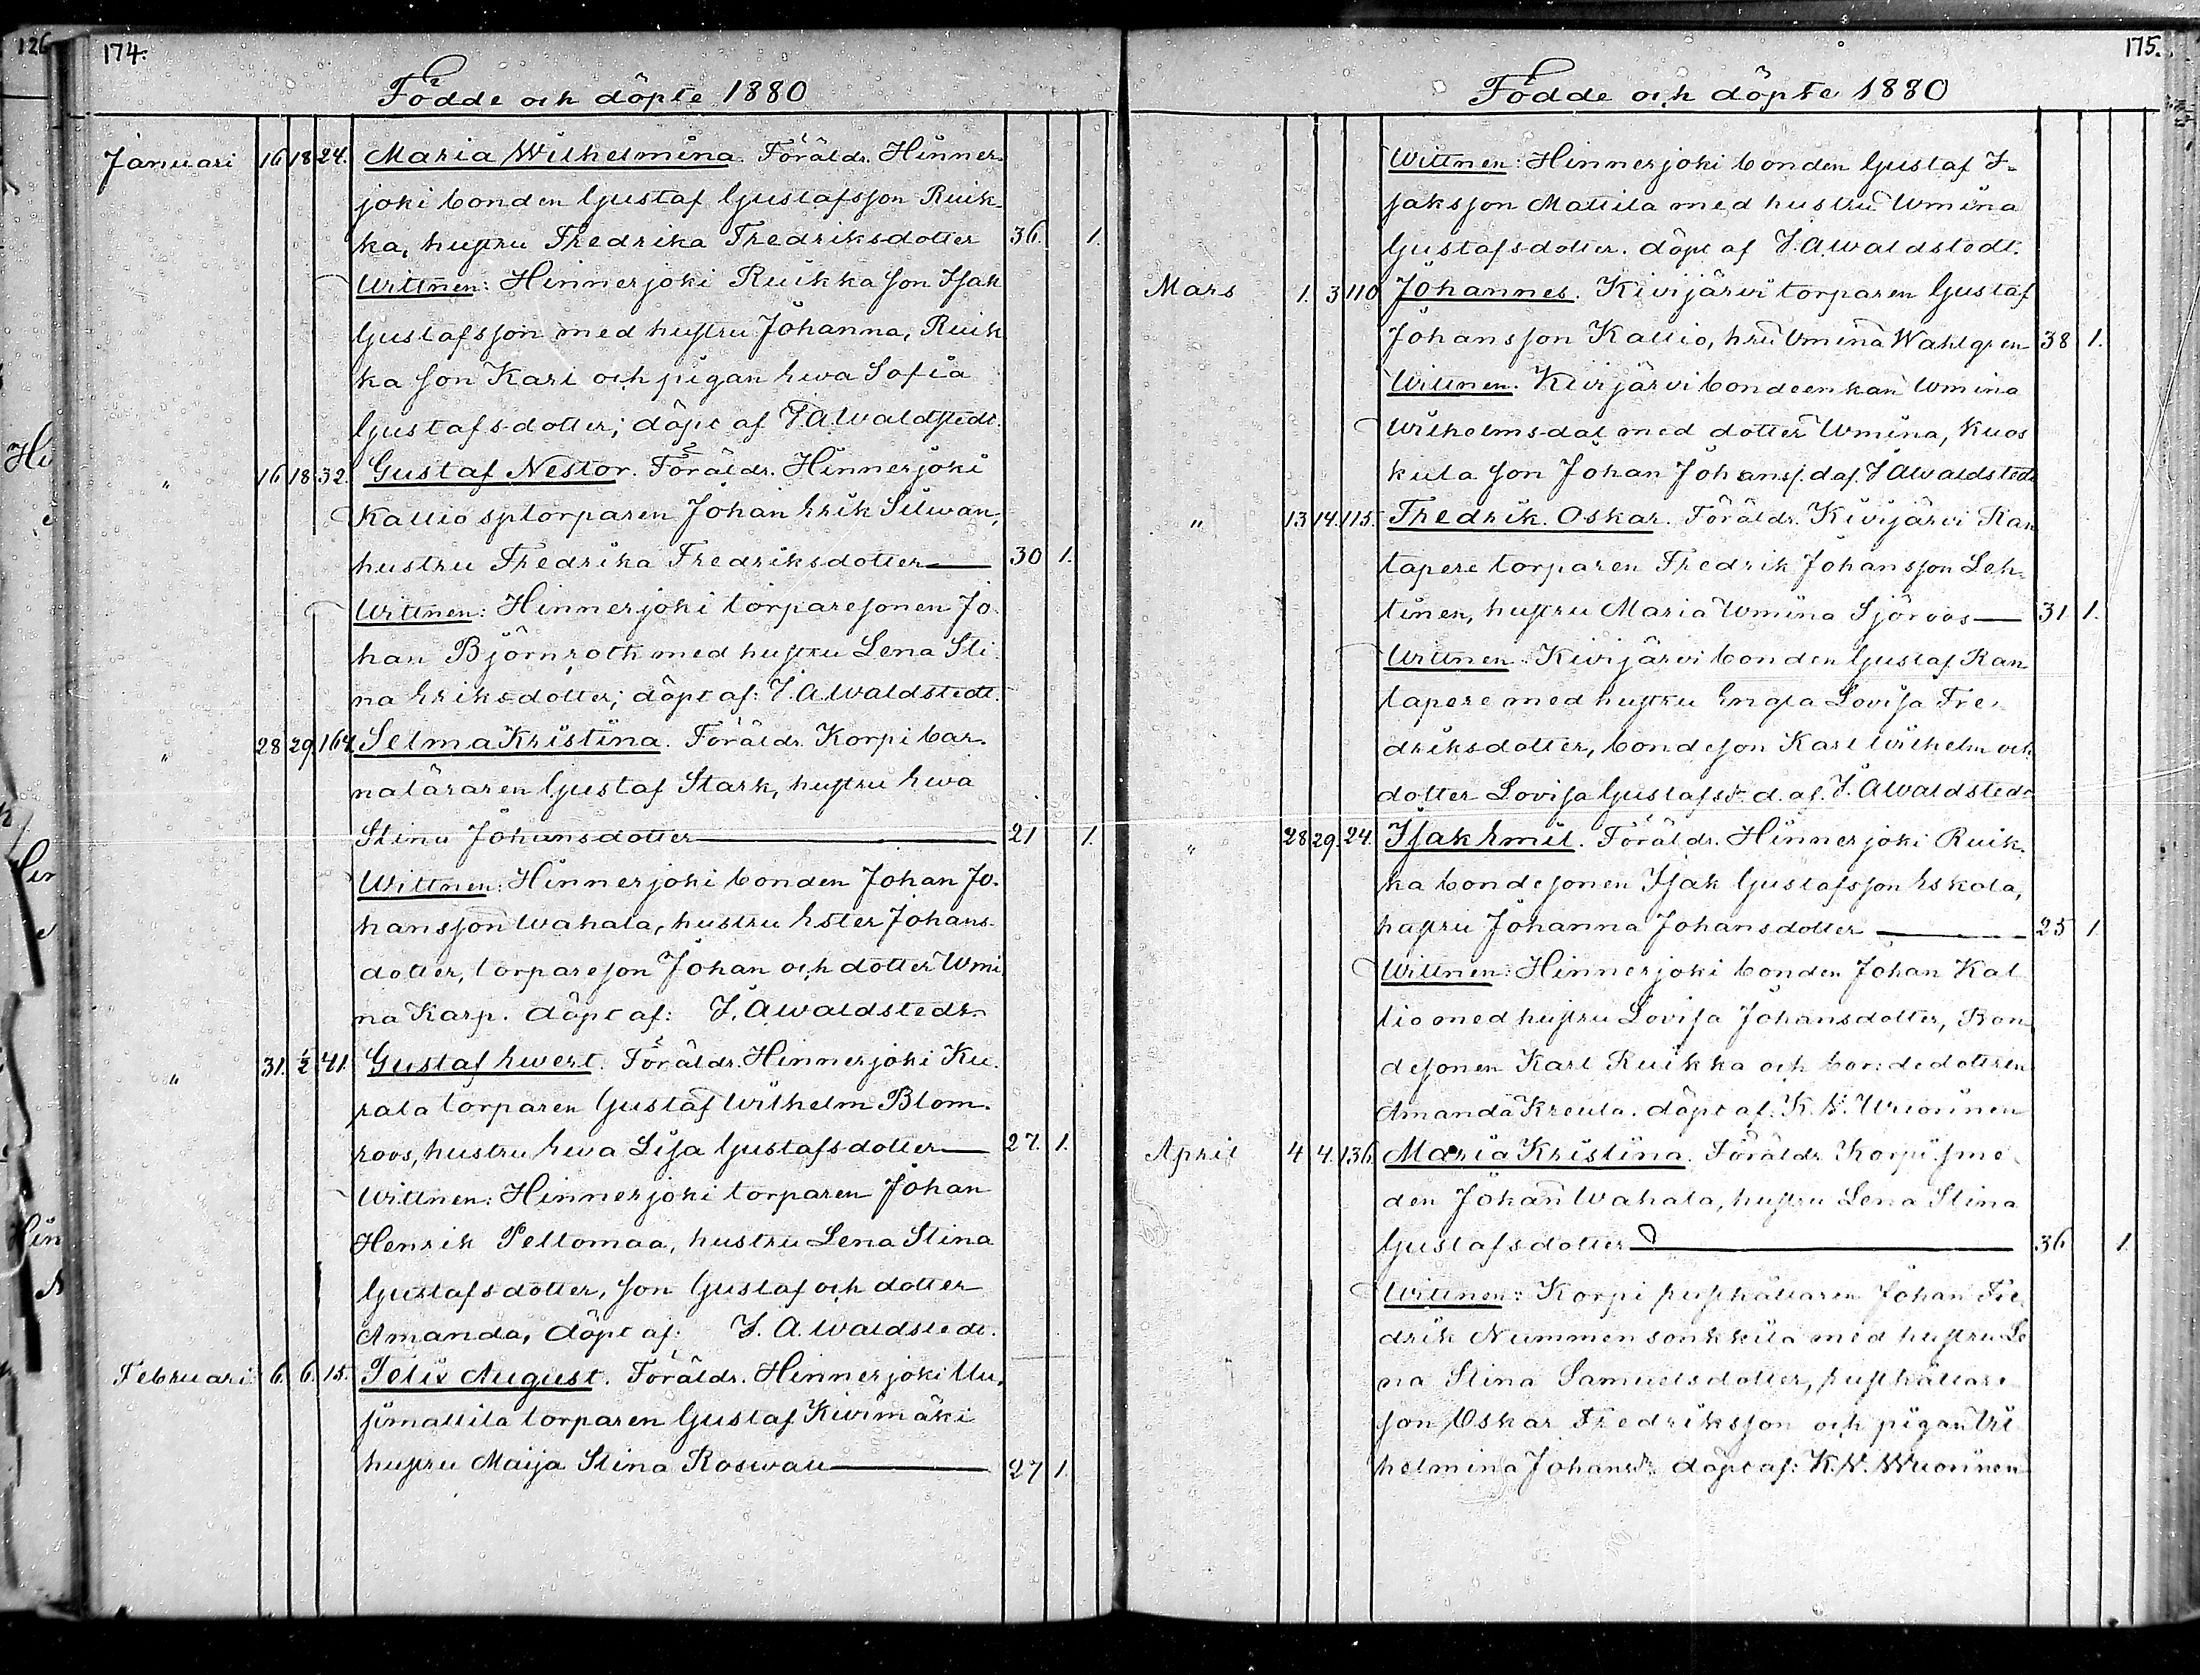 126
174.
Födde och döpte 1880
Januari 16 18 24. Maria Wilhelmina. Föräldr. Hinner-
joki bonden Gustaf Gustafsson Ruik-
ka, hustru Fredrika Fredriksdotter 36. 1.
Wittnen: Hinnerjoki Ruikka son Isak
Gustafsson med hustru Johanna, Ruik
ka son Karl och pigan Ewa Sofia
Gustafsdotter; döpt af F. A. Waldstedt.
" 16 18 32. Gustaf Nestor. Föräldr. Hinnerjoki
Kallio sptorparen Johan Erik Silwan,
hustru Fredrika Fredriksdotter 30 1.
Wittnen: Hinnerjoki torparesonen Jo-
han Björnroth med hustru Lena Sti-
na Eriksdotter; döpt af: F. A. Waldstedt.
" 28 29. 164. Selma Kristina. Föräldr. Korpi bar-
naläraren Gustaf Stark, hustru Ewa
Stina Johansdotter 21 1.
Wittnen: Hinnerjoki bonden Johan Jo-
hansson Wahala, hustru Ester Johans-
dotter, torpareson Johan och dotter Wmi
na Karp. döpt af: F. A. Waldstedt.
" 31. ½ 41. Gustaf Ewert. Föräldr. Hinnerjoki Ku-
rala torparen Gustaf Wilhelm Blom-
roos, hustru Ewa Lisa Gustafsdotter 27. 1.
Wittnen: Hinnerjoki torparen Johan
Henrik Peltomaa, hustru Lena Stina
Gustafsdotter, son Gustaf och dotter
Amanda, döpt af: F. A. Waldstedt.
Februari 6. 6. 15. Felix August. Föräldr. Hinnerjoki Uu-
simattila torparen Gustaf Kivimäki
hustru Maija Stina Roswall 27 1.
175.
Födde och döpte 1880
Wittnen: Hinnerjoki bonden Gustaf I-
saksson Mattila med hustru Wmina
Gustafsdotter. döpt af F. A. Waldstedt.
Mars 1. 3 110 Johannes. Kivijärvi torparen Gustaf
Johansson Kallio, hru Wmina Wahlgren 38 1.
Wittnen. Kivijärvi bondeenkan Wmina
Wilhelmsdot med dotter Wmina, Kuos
kula son Johan Johanss. d. af. F. A. Waldstedt
" 13 14. 115. Fredrik Oskar. Föräldr. Kivijärvi Ran
tapere torparen Fredrik Johansson Leh-
tinen, hustru Maria Wmina Sjöroos 31 1.
Wittnen. Kivijärvi bonden Gustaf Ran
tapere med hustru Engla Lovisa Fre-
driksdotter, bondeson Karl Wilhelm och
dotter Lovisa Gustafsdr. d. af. F. A. Waldstedt
" 28 29. 24. Isak Emil. Föräldr. Hinnerjoki Ruik-
ka bondesonen Isak Gustafsson Eskola,
hustru Johanna Johansdotter 25 1
Wittnen: Hinnerjoki bonden Johan Kal
lio med hustru Lovisa Johansdotter, Bon-
desonen Karl Ruikka och bondedottren
Amanda Kreula. döpt af: K. W. Wuorinen
April 4 4. 136. Maria Kristina. Föräldr. Korpi sme-
den Johan Wahala, hustru Lena Stina
Gustafsdotter 36 1.
Wittnen: Korpi husthållaren Johan Fre-
drik Nummensonkkila med hustru Le
na Stina Samuelsdotter, husthållare
son Oskar Fredriksson och pigan Wil
helmina Johansdr. döpt af: K. W. Wuorinen